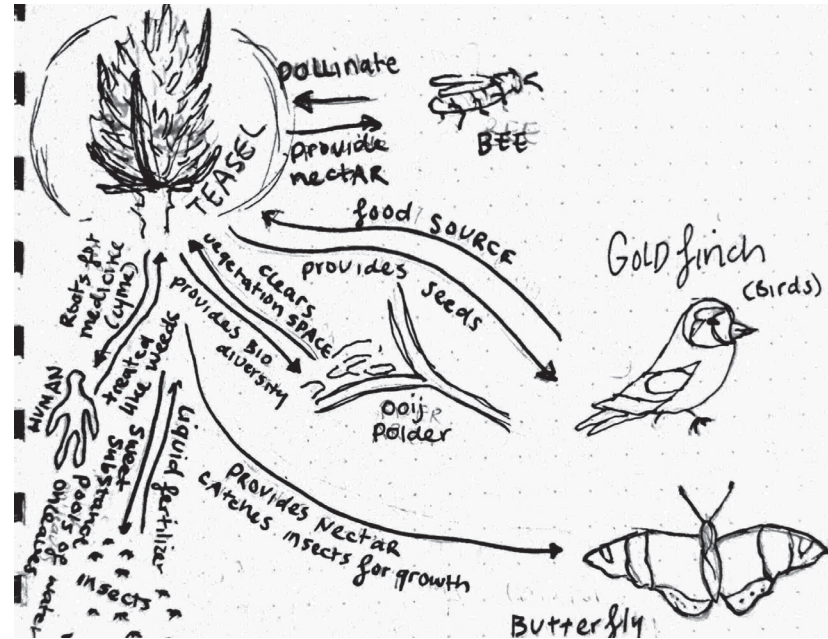 pollinate
BEE
provide
nectAR
TEASEL
food SOURCE
provides
seeds
GOLDfinch
(Birds)
clears
vegetation SPACE
provides BIO
diversity
ooij
polder
Roots for
medicine
(Lyme)
treated
like weeds
HUMAN
sweet
substance
pools of water
on leaves
Liquid fertilizer
insects
PROVIDES NECTAR
CATCHES insects for growth
Butterfly